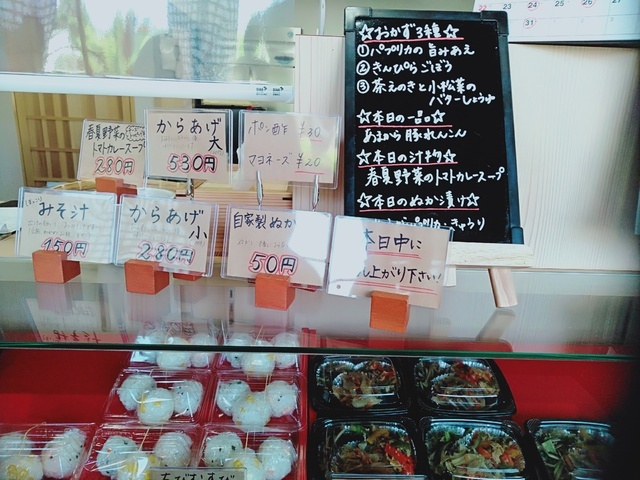 ☆おかず3種☆
①パプリカの旨みあえ
②きんぴらごぼう
③茶えのきと小松菜の
バターしょうゆ
☆本日の一品☆
あまから豚れんこん
☆本日の汁物☆
春夏野菜のトマトカレースープ
☆本日のぬか漬け☆
パプリカ・きゅうり
春夏野菜の
トマトカレースープ
280円
からあげ
大
530円
ポン酢 ¥30
マヨネーズ ¥20
みそ汁
150円
からあげ
小
280円
自家製ぬか
50円
本日中に
上がり下さい
22 23 24 25 26
31